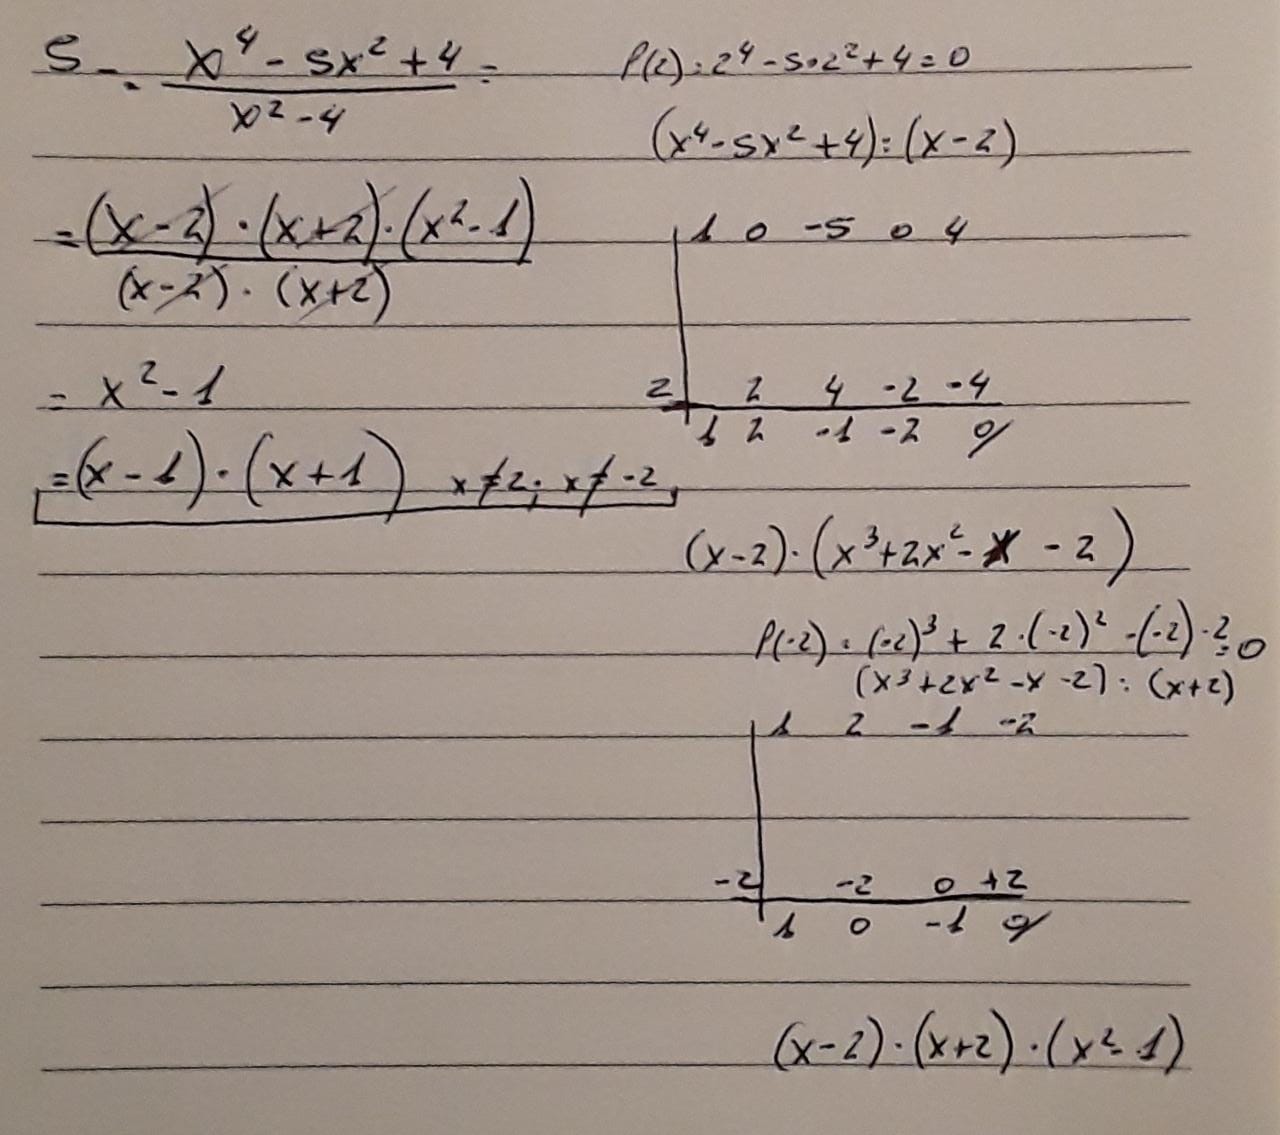 5 - x⁴ - 5x² + 4 =
x² - 4
= (x-2) · (x+2) · (x² - 1)
(x-2) · (x+2)
= x² - 1
= (x-1) · (x+1) x ≠ 2; x ≠ -2
P(2) = 2⁴ - 5·2² + 4 = 0
(x⁴ - 5x² + 4) : (x-2)
1 0 -5 0 4
2 2 4 -2 -4
1 2 -1 -2 0
(x-2) · (x³ + 2x² - x - 2)
P(-2) = (-2)³ + 2·(-2)² - (-2) - 2 = 0
(x³ + 2x² - x - 2) : (x+2)
1 2 -1 -2
-2 -2 0 +2
1 0 -1 0
(x-2) · (x+2) · (x² - 1)